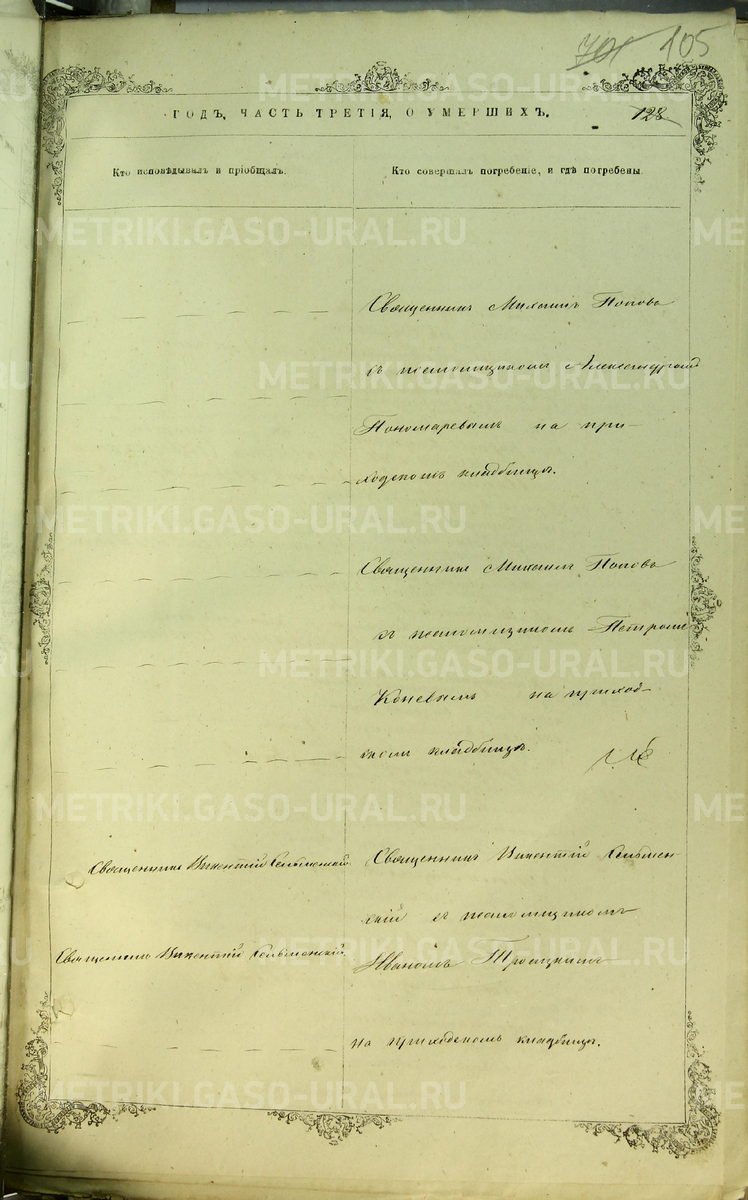 105
128
ГОДЪ, ЧАСТЬ ТРЕТІЯ, О УМЕРШИХЪ.
Кто исповѣдывалъ и пріобщалъ.
Кто совершалъ погребеніе, и гдѣ погребены.
Священникъ Михаилъ Поповъ
съ помощникомъ Александромъ
Пономаревымъ на при-
ходскомъ кладбищѣ.
Священникъ Михаилъ Поповъ
съ помощникомъ Петромъ
Коневымъ на приход-
скомъ кладбищѣ.
Священникъ Викентій
Священникъ Викентій
Священникъ Викентій
скій съ помощникомъ
Иваномъ Троицкимъ
на приходскомъ кладбищѣ.
METRIKI.GASO-URAL.RU